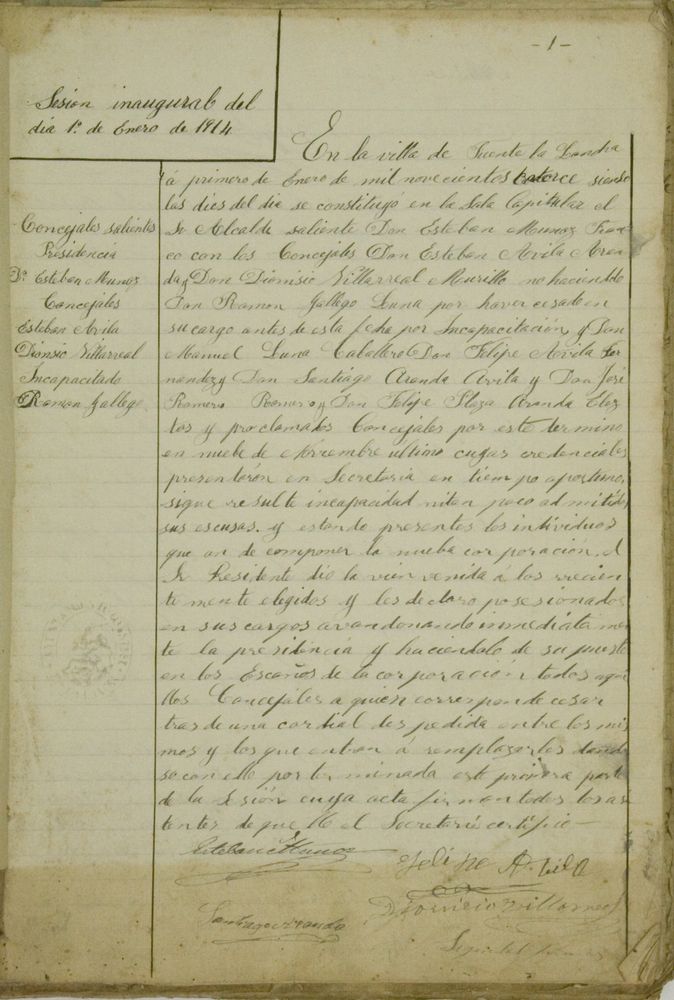 -1-
Sesion inaugural del
dia 1º de Enero de 1914
Concejales salientes
Presidencia
Dn Esteban Munoz
Concejales
Esteban Avila
Dionisio Villarreal
Incapacitado
Ramon Gallego
En la villa de Fuente la Lancha
á primero de Enero de mil novecientos catorce siendo
las dies del dia se constituyó en la Sala Capitular el
Sr Alcalde saliente Don Esteban Munoz Fran
co con los Concejales Don Esteban Avila Aran
da y Don Dionisio Villarreal Murillo no haciendolo
Don Ramon Gallego Luna por haver cesado en
su cargo antes de esta fecha por Incapacitación y Don
Manuel Luna Caballero Don Felipe Avila Fer
nandez y Don Santiago Aranda Avila y Don José
Romero Romero y Don Felipe Plaza Aranda Elec
tos y proclamados Concejales por este termino
en nuebe de Noviembre ultimo cuyas credenciales
presentarón en Secretaria en tiempo oportuno,
sigue resulte incapacidad ni tan poco admitidas
sus escusas. y estando presentes los individuos
que an de componer la nueba corporación, el
Sr Presidente dio la vien venida á los rrecien
te mente elegidos y les declaro posesionados
en sus cargos avandonando inmediatamen
te la presidencia y haciendolo de su puesto
en los Escaños de la corporación todos aque
llos Concejales a quien corresponde cesar
tras de una cordial despedida entre los mis
mos y los que entran a remplazarles dando
se con ello por terminada esta primera parte
de la Sesión cuya acta firman todos los asis
tentes de que Yo el Secretario certifico
Esteban Munoz
Felipe Avila
Santiago Aranda
Dionisio Villarreal